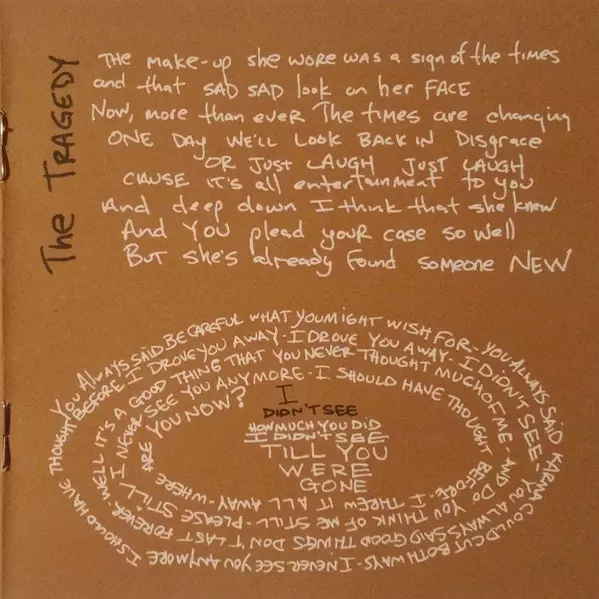 The TRAGEDY
THE MAKE-UP SHE WORE WAS A SIGN of the times
and that SAD SAD look on her FACE
Now, more than ever The times are changing
ONE DAY WE'LL LOOK BACK IN DISGRACE
OR JUST LAUGH JUST LAUGH
CAUSE IT'S all entertainment TO you
And deep down I think that she knew
And YOU plead your case so well
BUT she's already found someone NEW
YOU ALWAYS SAID BE CAREFUL WHAT YOU MIGHT WISH FOR - YOU ALWAYS SAID KARMA COULD CUT BOTH WAYS - I NEVER SEE YOU ANYMORE I SHOULD HAVE THOUGHT BEFORE. I DROVE YOU AWAY - I DROVE YOU AWAY - I DIDN'T SEE - YOU ALWAYS SAID GOOD THINGS DON'T LAST FOREVER. WELL IT'S A GOOD THING THAT YOU NEVER THOUGHT MUCH OF ME - AND DO YOU THINK OF ME STILL - PLEASE STILL I NEVER SEE YOU ANYMORE - I SHOULD HAVE THOUGHT BEFORE - I THREW IT ALL AWAY - WHERE ARE YOU NOW?
I
DIDN'T SEE
HOW MUCH YOU DID
I DIDN'T SEE
TILL YOU
WERE
GONE